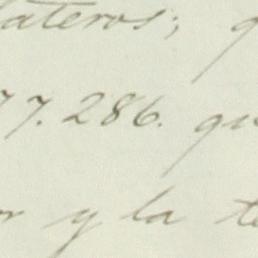 ateros; q
77.286. qu
r y la te